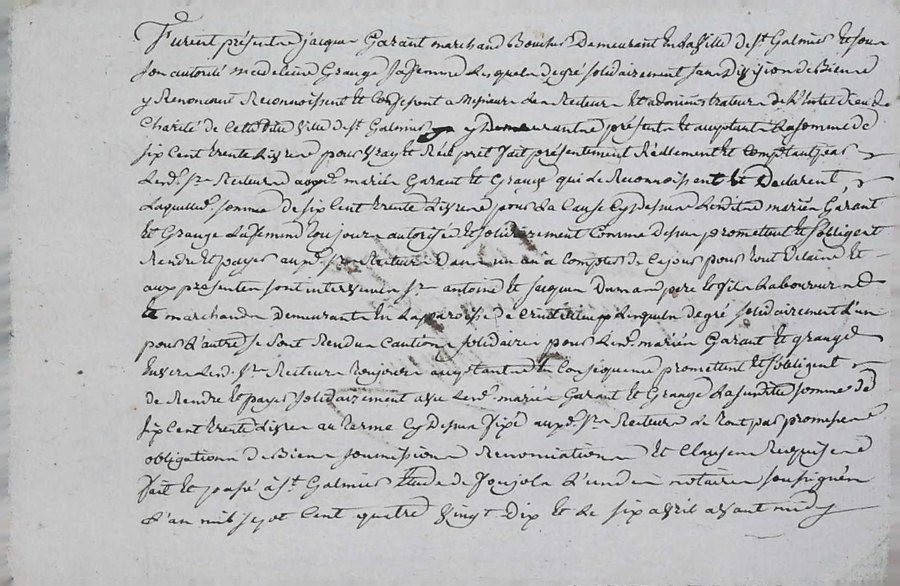 Furent présents jacques Garant marchand Boucher Demeurant En la Ville de St Galmier et sous
son autorité madeleine Grange sa femme Lesquels de gré solidairement sans Division de Biens
y Renoncant Reconnoissent et Confessent a messieurs Les Recteurs et administrateurs de l'hotel dieu de
Charité de Cette ditte Ville de St Galmier y Demeurants présents et acceptants La somme de
six Cent trente Livres pour Vray et Réel prêt fait présentement Réellement et Comptant par
Lesd. Srs Recteurs auxd. mariés Garant et Grange qui Le Reconnoissent et Declarent,
Laquelle somme de six Cent trente Livres pour La Cause Cy Dessus Lesdits mariés Garant
et Grange La femme toujours autorisée et solidairement Comme dessus promettent et s'obligent
Rendre et payer auxd. Srs Recteurs Dans un an a Compter de Ce jour pour tout Delais et
aux présentes sont intervenus Srs antoine et jacques Dumas pere et fils Laboureurs
et marchands demeurants En La paroisse de Lesquels de gré solidairement L'un
pour L'autre se sont Rendus Cautions solidaires pour Lesd. mariés Garant et grange
Envers Lesd. Srs Recteurs toujours acceptants et En Conséquence promettent et s'obligent
de Rendre et payer solidairement avec Lesd. mariés Garant et Grange La susditte somme de
six Cent trente Livres au terme Cy Dessus fixé auxd. Srs Recteurs Le tout par promesses
obligations de Biens soumissions Renonciations et Clauses Requises
fait et passé à St Galmier Etude de L'un des notaires soussignés
L'an mil sept Cent quatre Vingt Dix et Le six avril avant midy